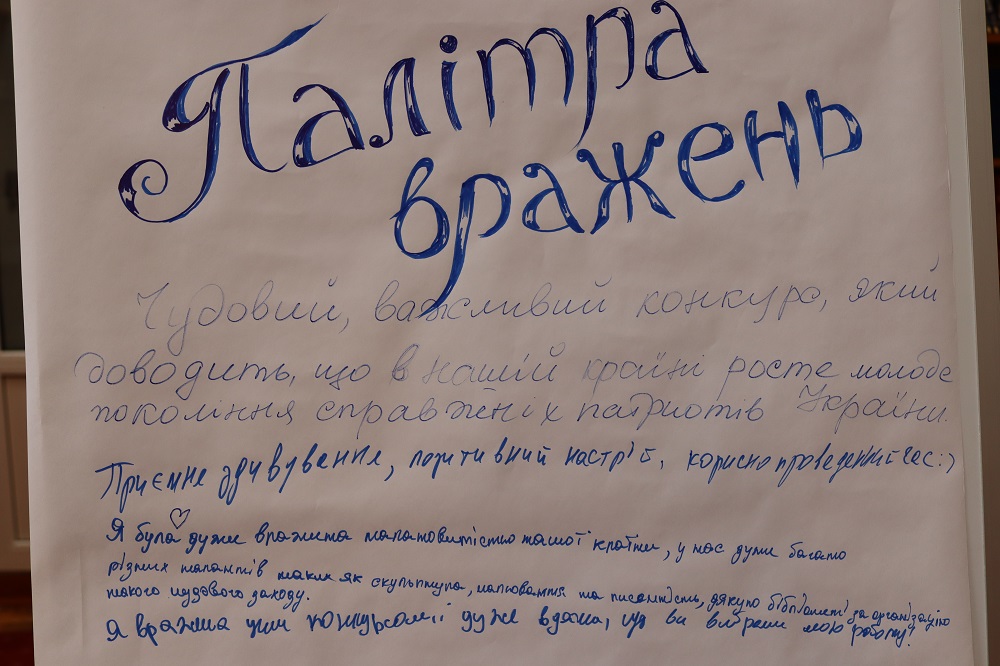 Палітра
вражень
Чудовий, важливий конкурс, який
доводить, що в нашій країні росте молоде
покоління справжніх патріотів України.
Приємне здивування, позитивний настрій, корисно проведений час :)
Я була дуже вражена талановитістю нашої країни, у нас дуже багато
різних талантів таких як скульптура, малювання та писемність, дякую бібліотеці за організацію
такого чудового заходу.
Я вражена цим конкурсом і дуже вдячна, що ви вибрали мою роботу!